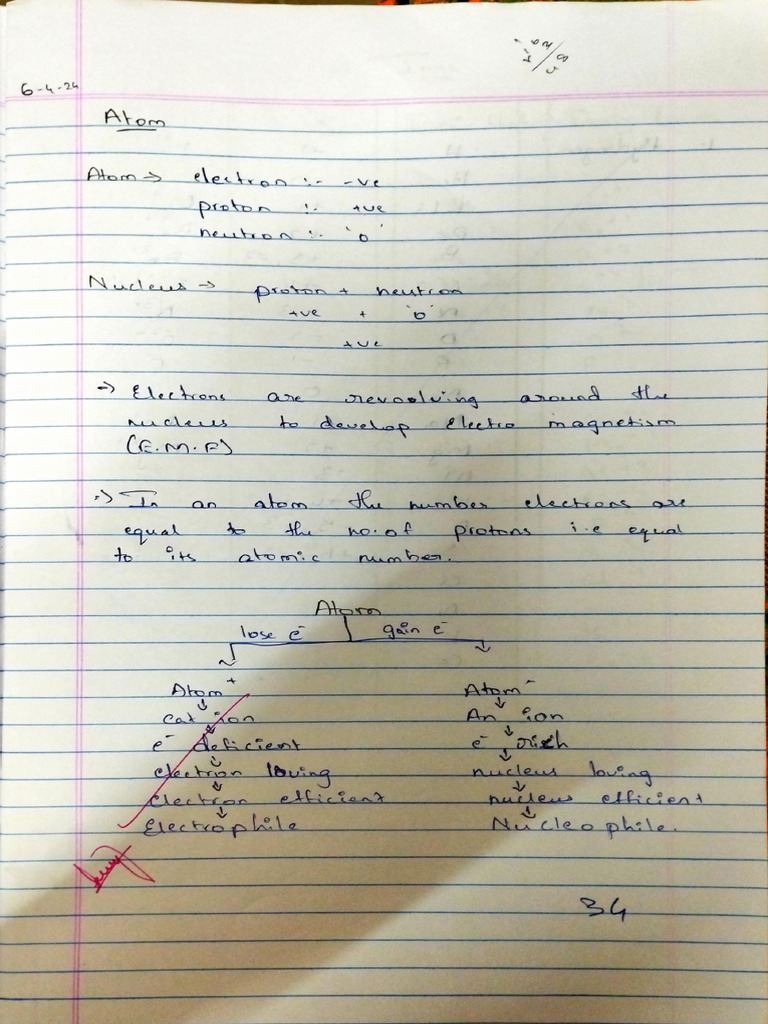 6-4-24
Atom
Atom → electron :- -ve
proton :- +ve
neutron :- 'o'
Nucleus → proton + neutron
+ve + 'o'
+ve
→ Electrons are revolving around the
nucleus to develop Electro magnetism
(E.M.F)
→ In an atom the number electrons are
equal to the no.of protons i.e equal
to its atomic number.
Atom
lose e⁻ gain e⁻
Atom⁺ Atom⁻
↓ ↓
cat ion An ion
↓ ↓
e⁻ deficient e⁻ rich
↓ ↓
electron loving nucleus loving
↓ ↓
electron efficient nucleus efficient
↓ ↓
Electrophile Nucleophile.
34